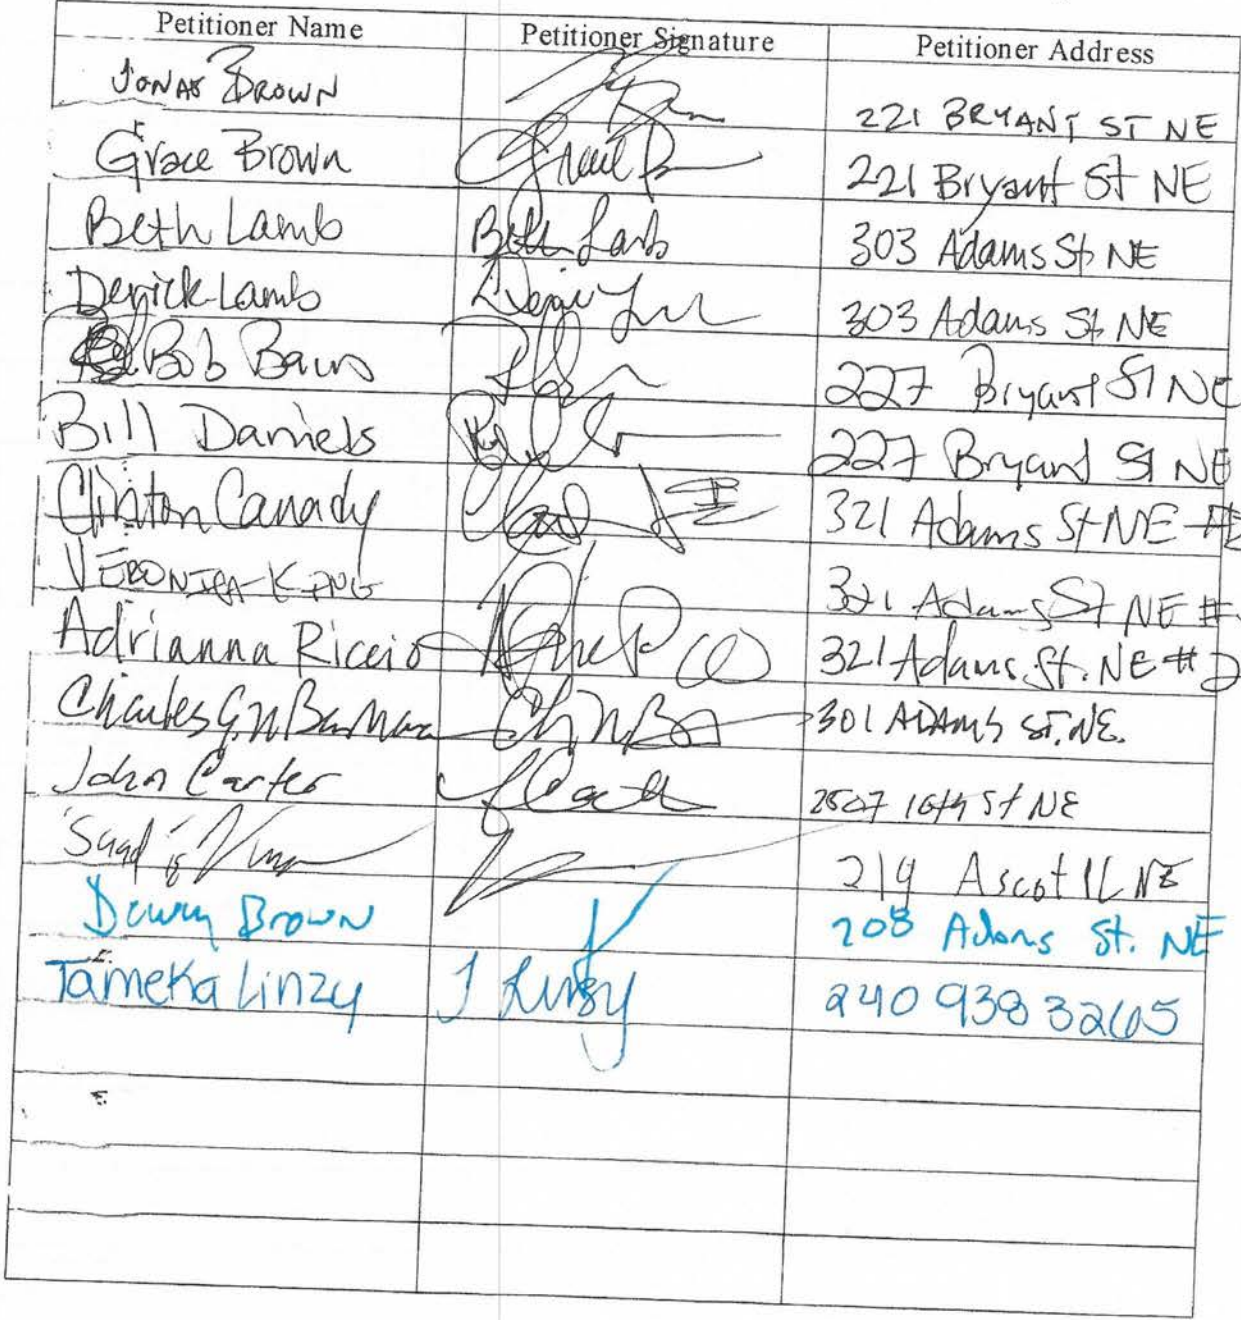 Petitioner Name Petitioner Signature Petitioner Address
JONAS BROWN 221 BRYANT ST NE
Grace Brown 221 Bryant St NE
Beth Lamb Beth Lamb 303 Adams St NE
Derick Lamb 303 Adams St NE
Bob Bains 227 Bryant St NE
Bill Daniels 227 Bryant St NE
Clinton Canady 321 Adams St NE
VERONICA KING 321 Adams St NE #
Adrianna Riccio 321 Adams St. NE #2
Charles G.N. 301 ADAMS ST. NE.
John Carter 2507 10th St NE
219 Ascot PL NE
Brown 208 Adams St. NE
Tameka Linzy T Linzy 240 938 3265